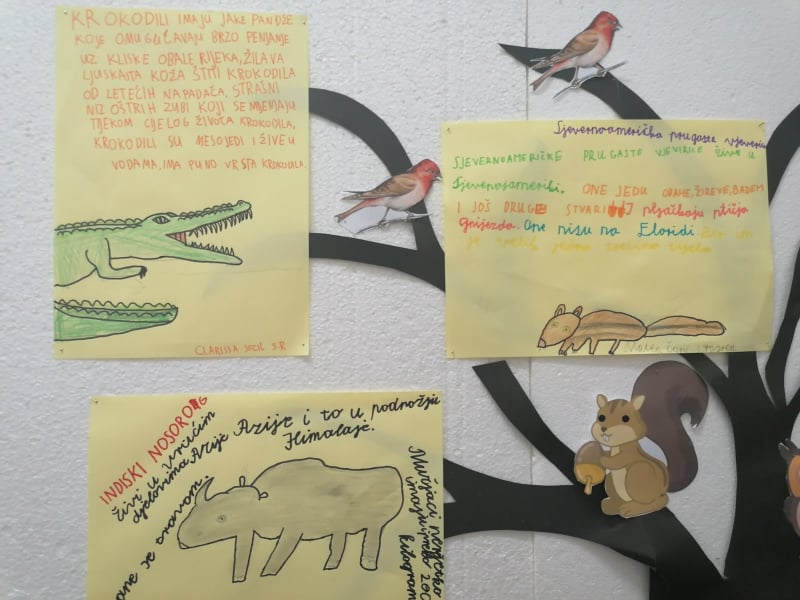 KROKODILI IMAJU JAKE PANDŽE
KOJE OMUGUĆAVAJU BRZO PENJANJE
UZ KLISKE OBALE RIJEKA, ŽILAVA
LJUSKASTA KOŽA ŠTITI KROKODILA
OD LETEĆIH NAPADAČA, STRAŠNI
NIZ OŠTRIH ZUBI KOJI SE MJENJAJU
TIJEKOM CIJELOG ŽIVOTA KROKODILA,
KROKODILI SU MESOJEDI I ŽIVE U
VODAMA, IMA PUNO VRSTA KROKODILA.
CLARISSA 3.R
Sjevernoamerička prugasta vjeverica
SJEVERNOAMERIČKE PRUGASTE VJEVERICE žive u
Sjevernojamerici. ONE JEDU ORAHE, ŽIREVE, BADEM
I JOŠ DRUGE STVARI I pljačkaju ptičja
gnijezda. One nisu na Floridi
je jedna tijela
INDISKI NOSOROG
živi u vrućim
djelovima Azije Azije i to u podnožju
Himalaje.
ane se travom.
Mužjaci
kilogram